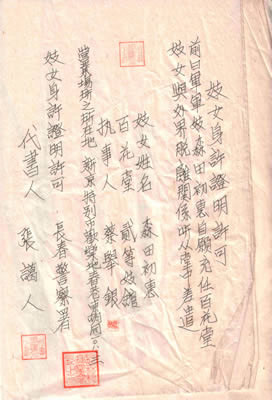 妓女身許證明許可
前日軍軍妓森田初惠自願充任百花堂
妓女與外界脱離關係此从堂召差遣
妓女姓名 森田初惠
百花堂 貳等妓館
执事人 蔡舉銀
營業場所之所在地 新京特別市歡樂地春
妓女身許證明許可 長春警察署
代書人 張 人